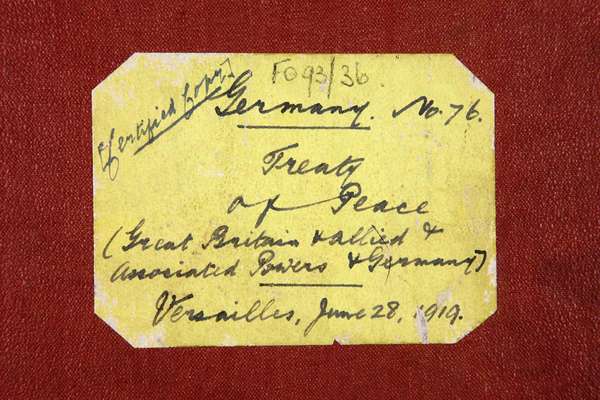 FO 93/36
[Certified Copy]
Germany. No. 76.
Treaty
of Peace
(Great Britain & Allied &
Associated Powers & Germany)
Versailles, June 28, 1919.